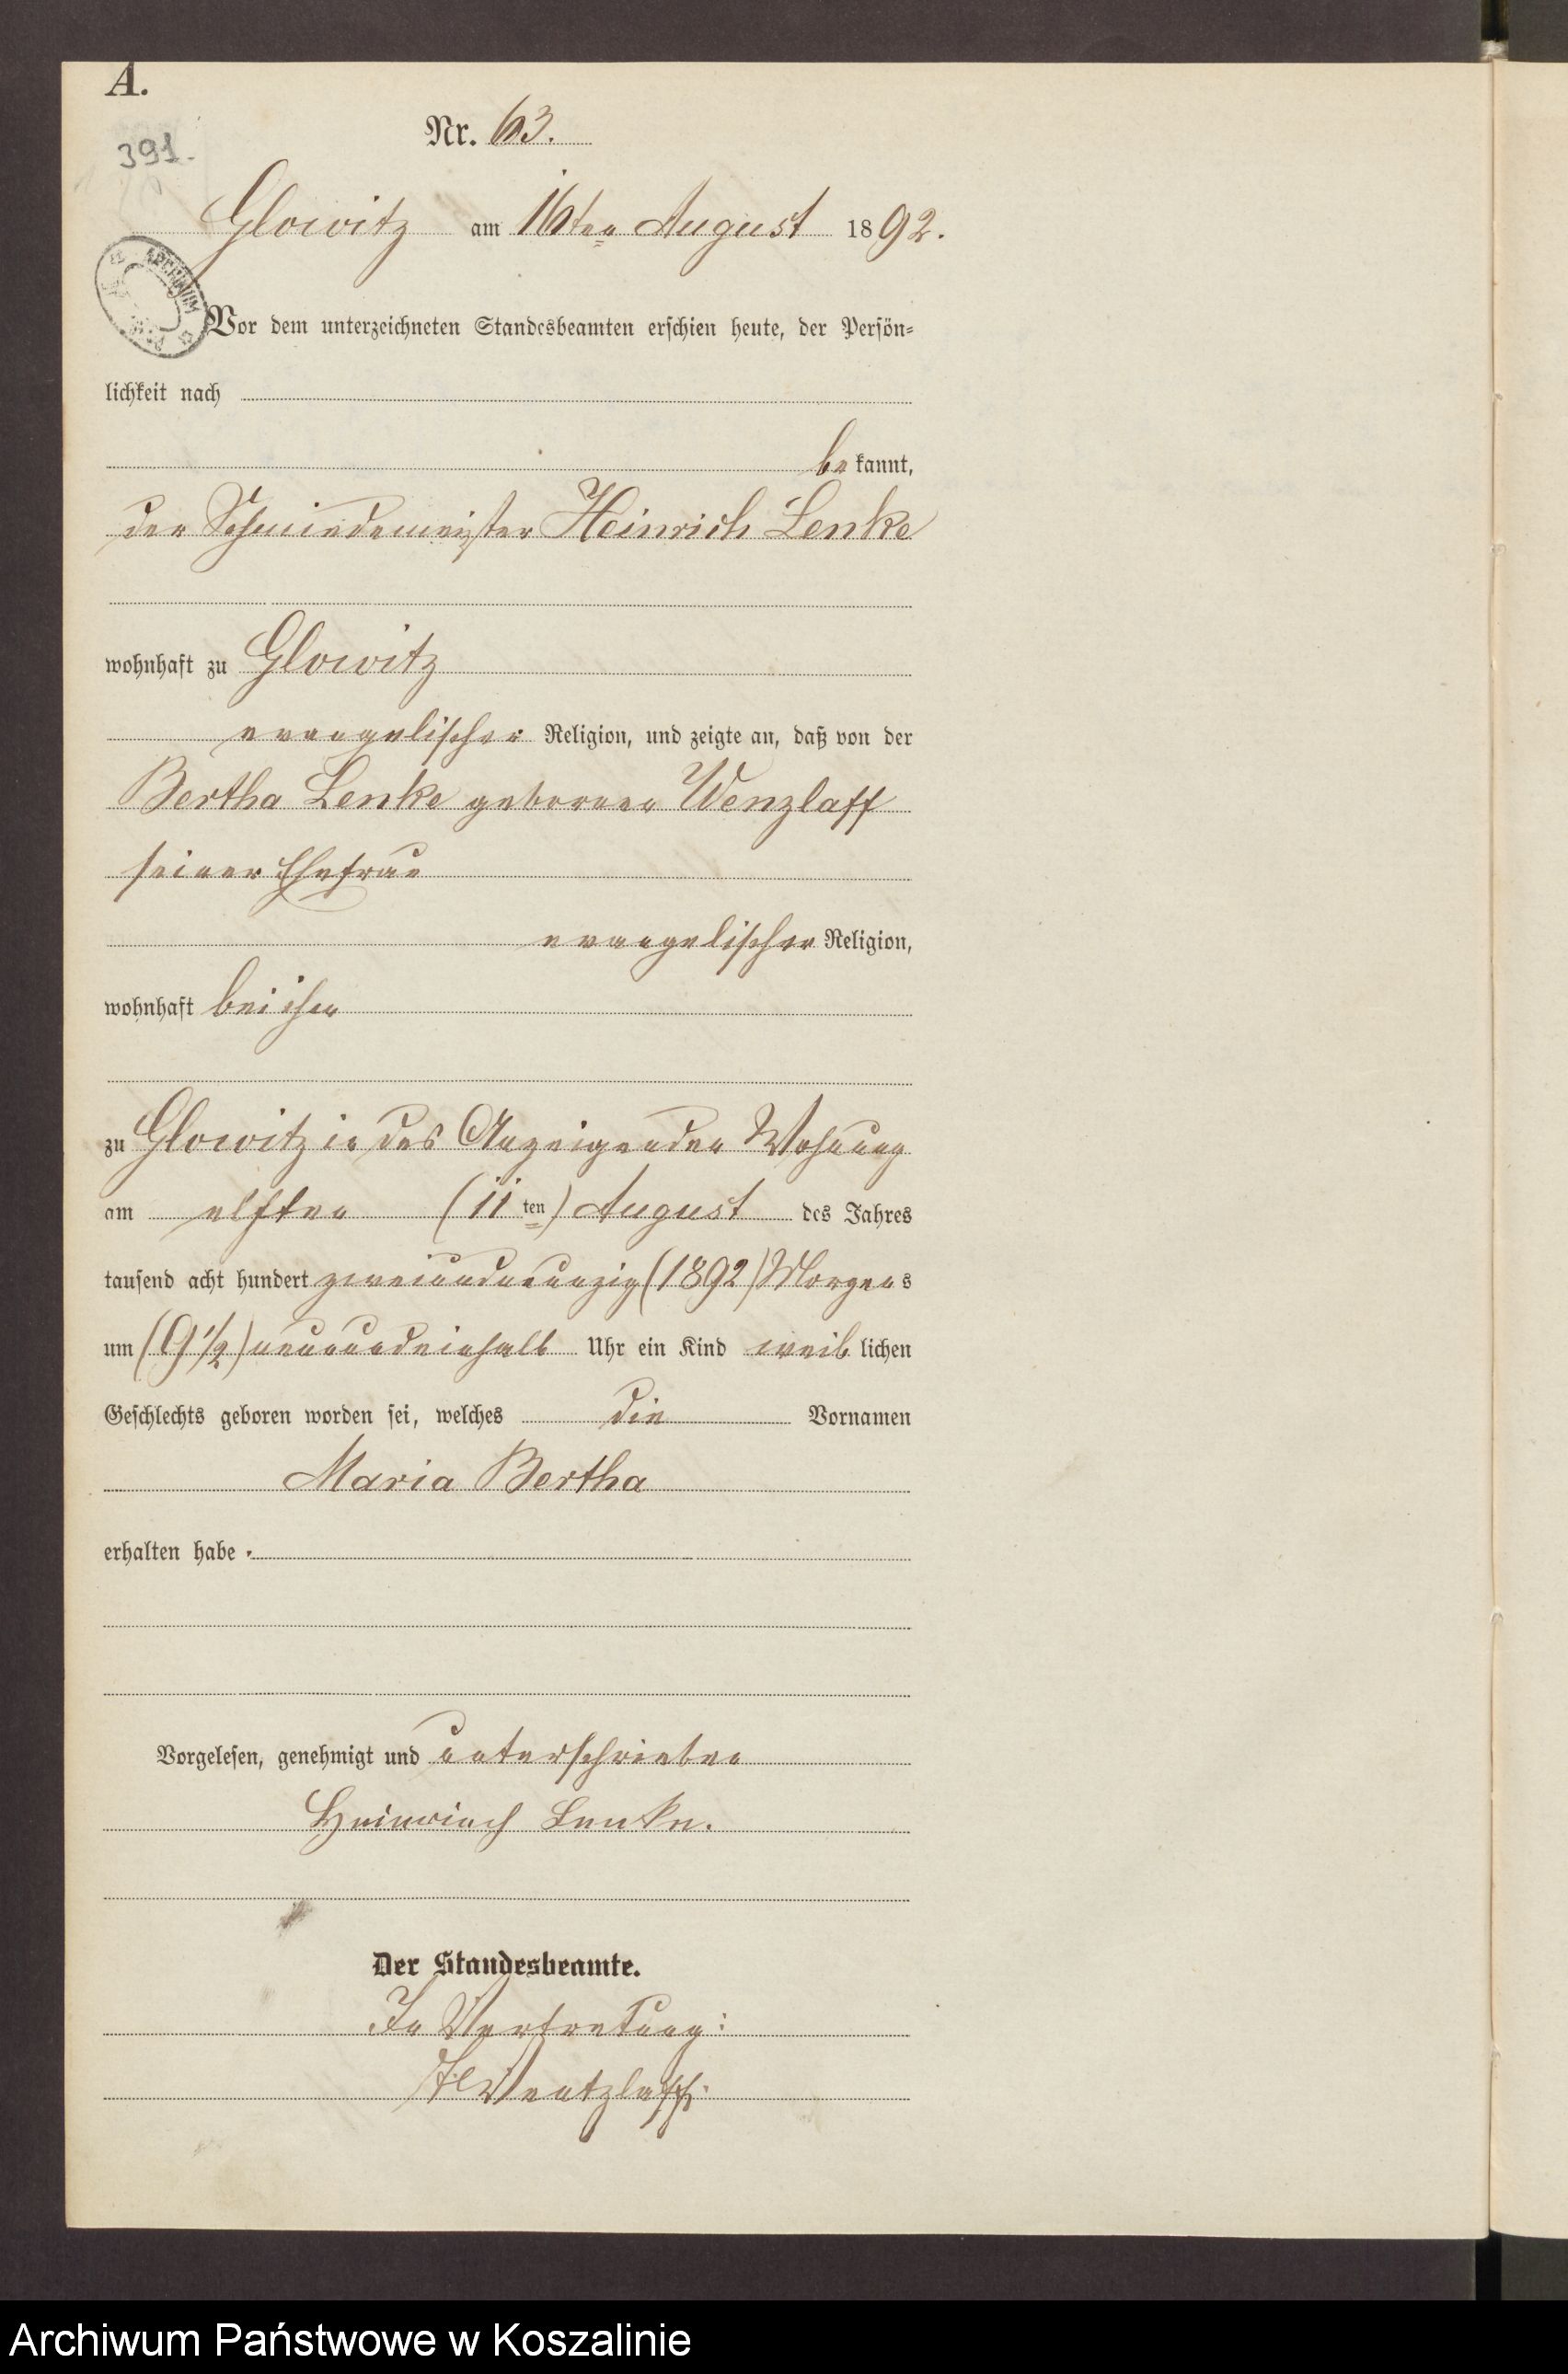 A.
Nr. 63.
391.
Glowitz am 16ten August 1892.
ARCHIWUM
Vor dem unterzeichneten Standesbeamten erschien heute, der Persön-
lichkeit nach
bekannt,
der Schmiedemeister Heinrich Lenke
wohnhaft zu Glowitz
evangelischer Religion, und zeigte an, daß von der
Bertha Lenke geborenen Wenzlaff
seiner Ehefrau
evangelischer Religion,
wohnhaft bei ihm
zu Glowitz in des Anzeigenden Wohnung
am elften (11ten) August des Jahres
tausend acht hundert zweiundneunzig (1892) Morgens
um (9 1/2) neunundeinhalb Uhr ein Kind weiblichen
Geschlechts geboren worden sei, welches die Vornamen
Maria Bertha
erhalten habe.
Vorgelesen, genehmigt und unterschrieben
Heinrich Lenke.
Der Standesbeamte.
In Vertretung:
Wentzlaff.
Archiwum Państwowe w Koszalinie